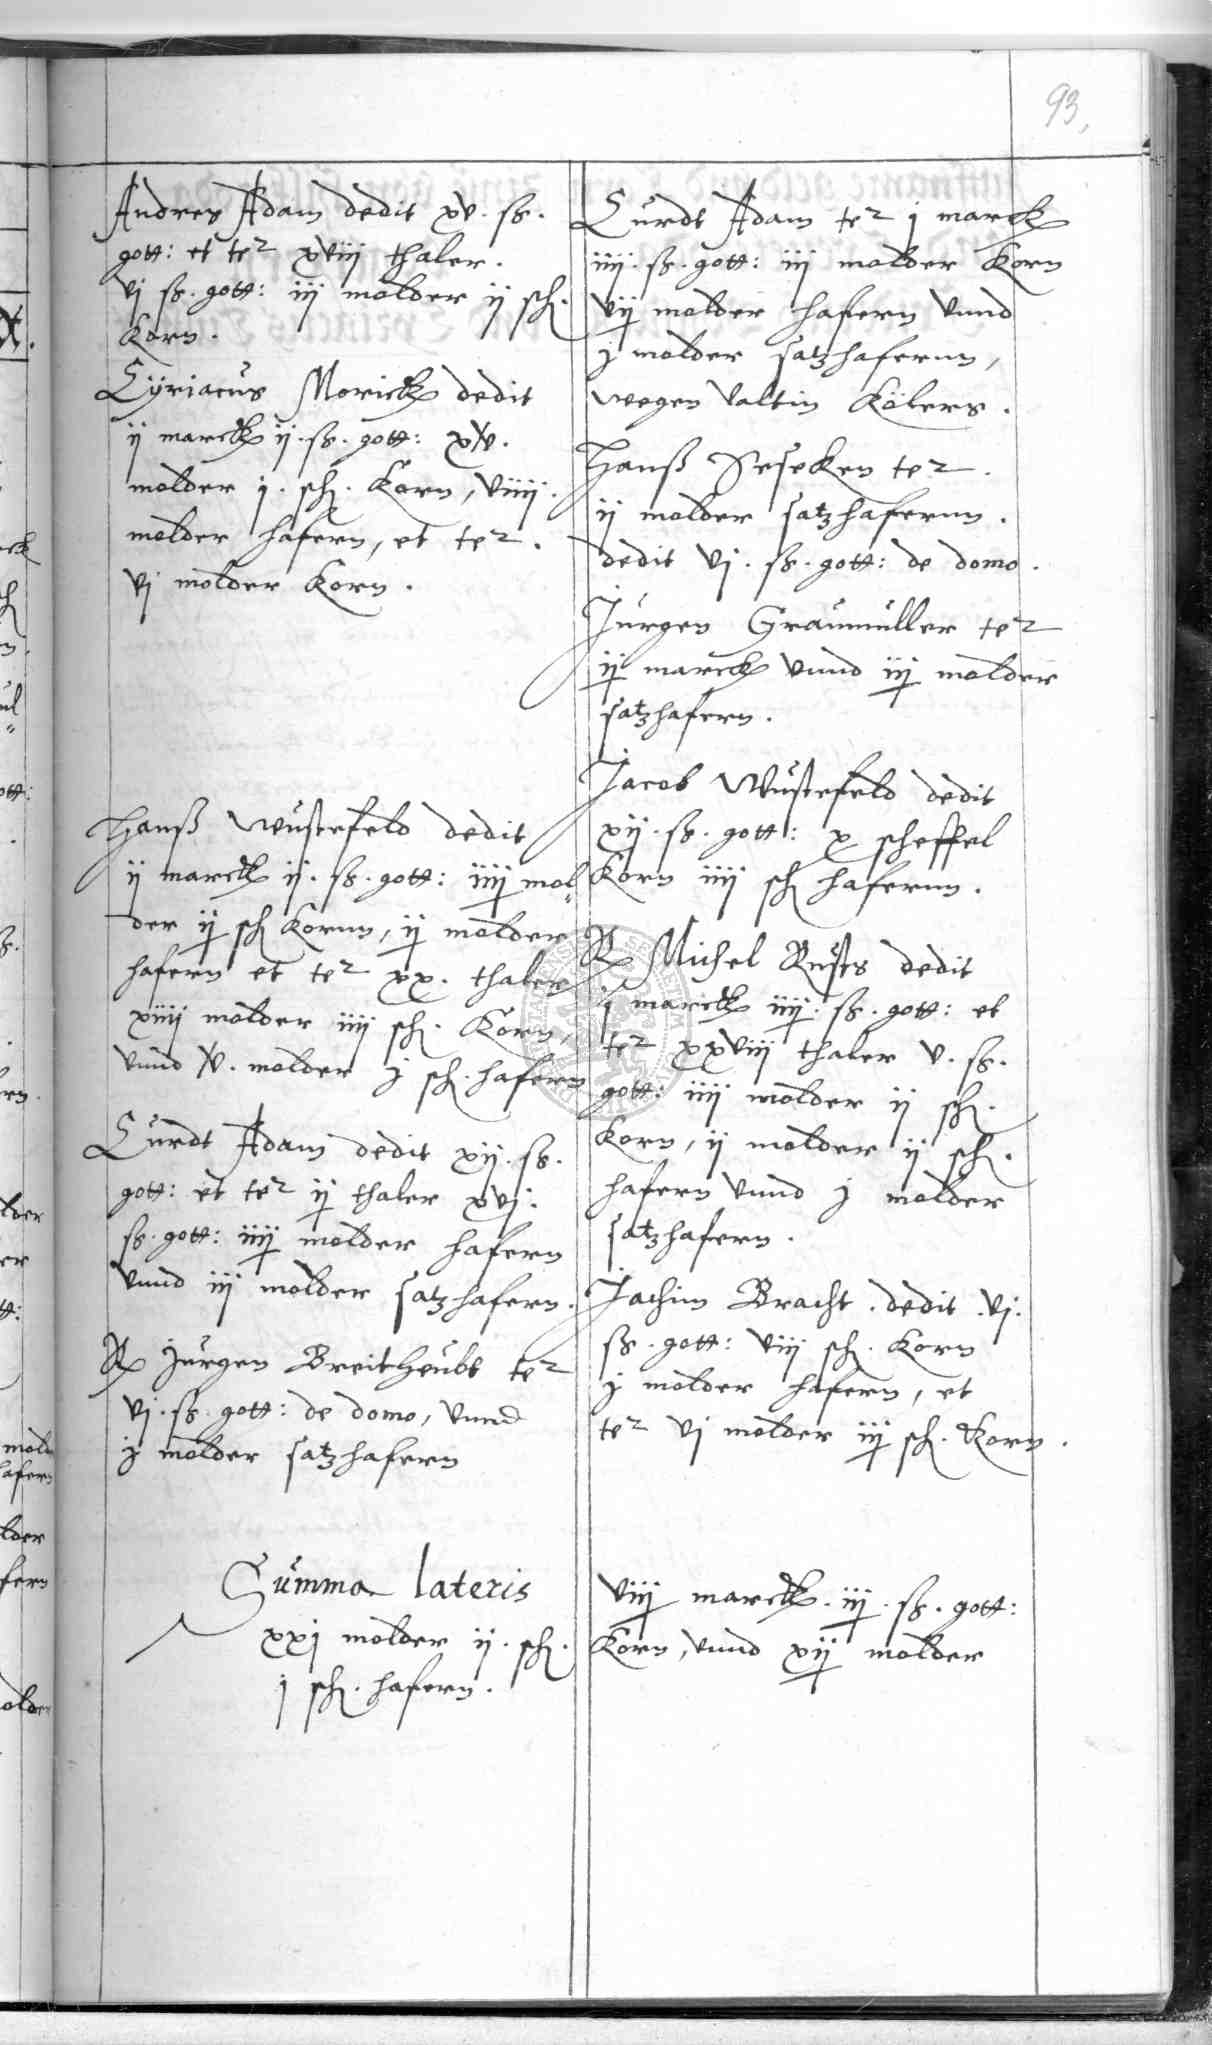 93,
Andres Adam dedit xv. ss.
gott: et te2 xviij thaler.
vj ss. gott: iij molder ij sch.
Korn.
Cyriacus Morick dedit
ij marck ij. ss. gott: xv.
molder j. sch. Korn, viiij.
molder hafern, et te2.
vj molder Korn.
Hanß Wüstefeld dedit
ij marck ij. ss. gott: iiij mol„
der ij sch Kornn, ij molder
hafern et te2 xx. thaler
xiiij molder iiij sch. Korn,
vnnd v. molder j sch. hafern
Curdt Adam dedit xij. ss.
gott: et te2 ij thaler xvj.
ss. gott: iiij molder hafern
vnnd iij molder satzhafern.
Jurgen Breitheubt te2
vj. ss. gott: de domo, vnnd
j molder satzhafern
Curdt Adam te2 j marck
iiij. ss. gott: iij molder Korn
vij molder hafern vnnd
j molder satzhafernn,
wegen Valtin Kölers.
Hanß te2.
ij molder satzhafernn.
dedit vj. ss. gott: de domo.
Jurgen Graumuller te2
ij marck vnnd iij molder
satzhafern.
Jacob Wüstefeld dedit
xij. ss. gott: x scheffel
Korn iiij sch hafernn.
Michel Rusts dedit
j marck iiij. ss. gott: et
te2 xxviij thaler v. ss.
gott: iiij molder ij sch.
Korn, ij molder ij sch.
hafern vnnd j molder
satzhafern.
Jachim Bracht. dedit .vj.
ss. gott: viij sch. Korn
j molder hafern, et
te2 vj molder iij sch. Korn.
Summa lateris
viij marck. iij. ss. gott:
xxj molder ij. sch.
Korn, vnnd xij molder
j sch. hafern.